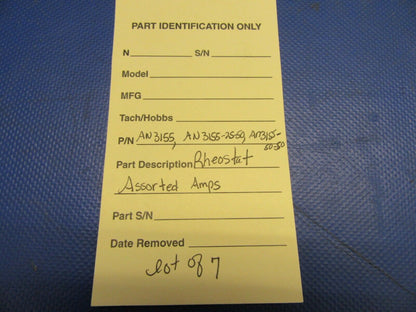 PART IDENTIFICATION ONLY
N S/N
Model
MFG
Tach/Hobbs
P/N AN3155, AN3155-25-50, AN3155-
50-50
Part Description Rheostat
Assorted Amps
Part S/N
Date Removed
lot of 7